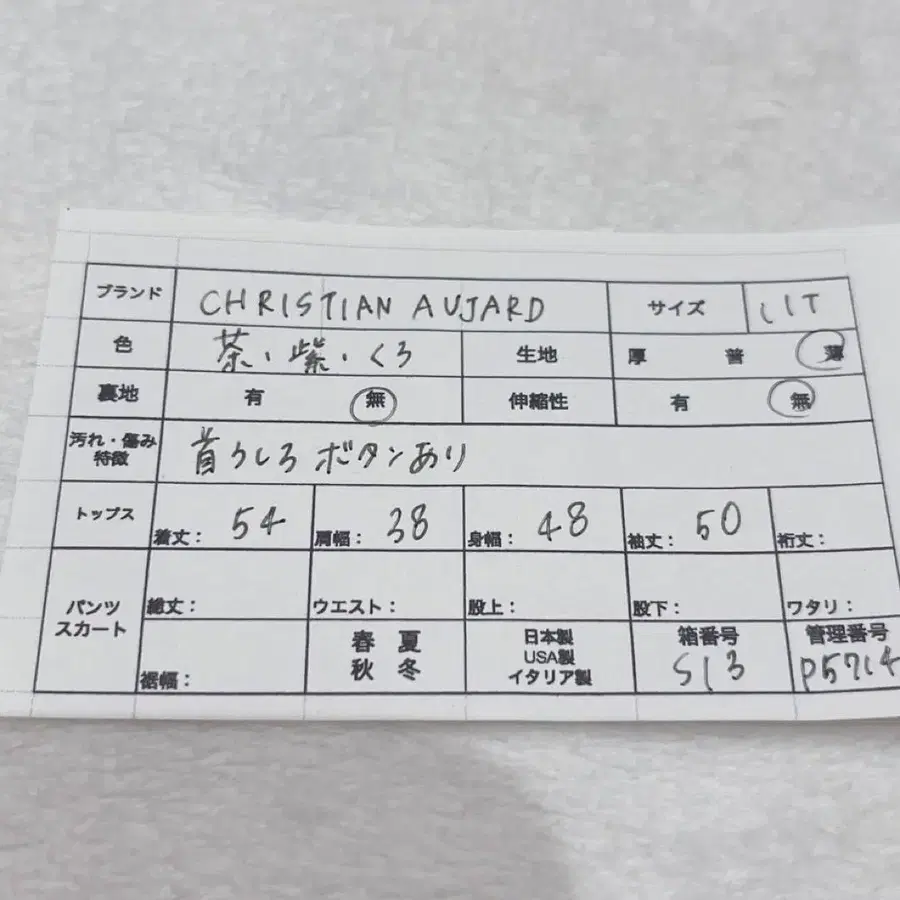 ブランド CHRISTIAN AUJARD サイズ
色 茶・紫・くろ 生地 厚 普 薄
裏地 有 無 伸縮性 有 無
汚れ・傷み
特徴 首うしろ ボタンあり
トップス 着丈： 54 肩幅： 38 身幅： 48 袖丈： 50 裄丈：
パンツ
スカート 総丈： ウエスト： 股上： 股下： ワタリ：
裾幅： 春 夏
秋 冬
日本製
USA製
イタリア製
箱番号
S13
管理番号
P5714